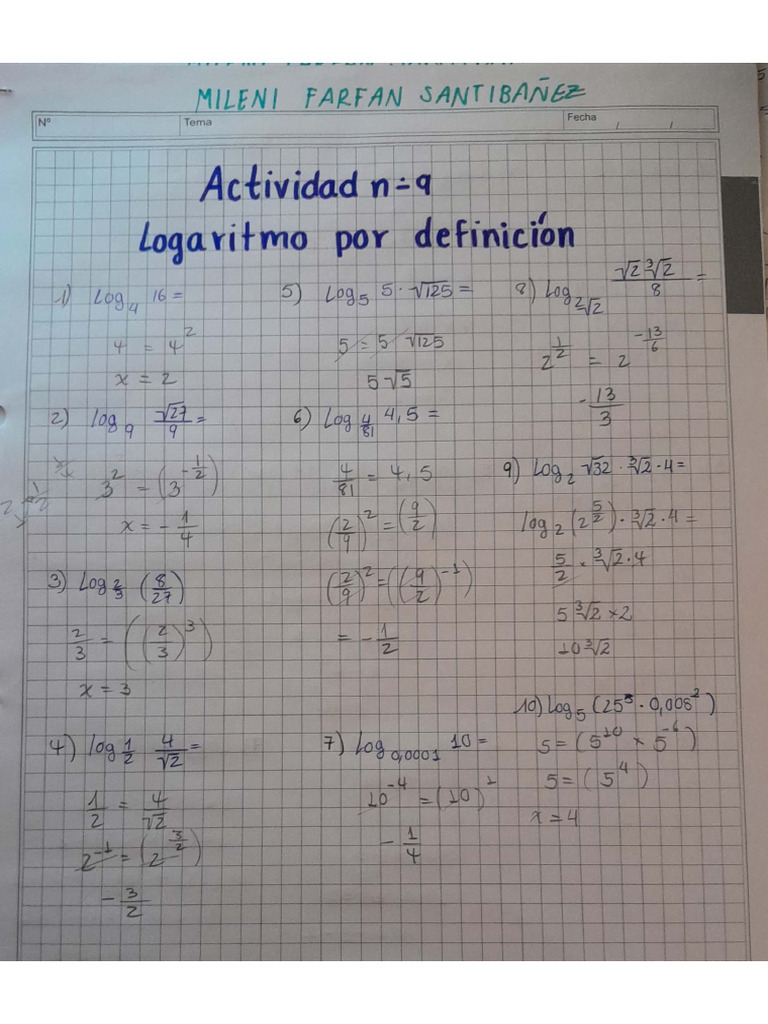 MILENI FARFAN SANTIBAÑEZ
Nº Tema Fecha / /
Actividad n=9
Logaritmo por definición
1) Log₄ 16 =
4 = 4²
x = 2
2) log₉ √27/9 =
3² = (3^(-1/2))
x = -1/4
3) Log_(2/3) (8/27)
2/3 = ((2/3)³)
x = 3
4) log_(1/2) 4/√2 =
1/2 = 4/√2
2⁻¹ = (2^(3/2))
-3/2
5) Log₅ 5·√125 =
5 = 5 √125
5√5
6) Log_(4/81) 4,5 =
4/81 = 4,5
(2/9)² = (9/2)
(2/9)² = ((9/2)⁻¹)
= -1/2
7) Log_0,0001 10 =
10⁻⁴ = (10)¹
-1/4
8) Log_(2√2) √2 ∛2/8 =
2^(1/2) = 2^(-13/6)
-13/3
9) Log₂ √32 · ∛2 · 4 =
log₂ (2^(5/2)) · ∛2 · 4 =
5/2 × ∛2 · 4
5∛2 × 2
10∛2
10) log₅ (25⁵ · 0,008²)
5 = (5¹⁰ × 5⁻⁶)
5 = (5⁴)
x = 4